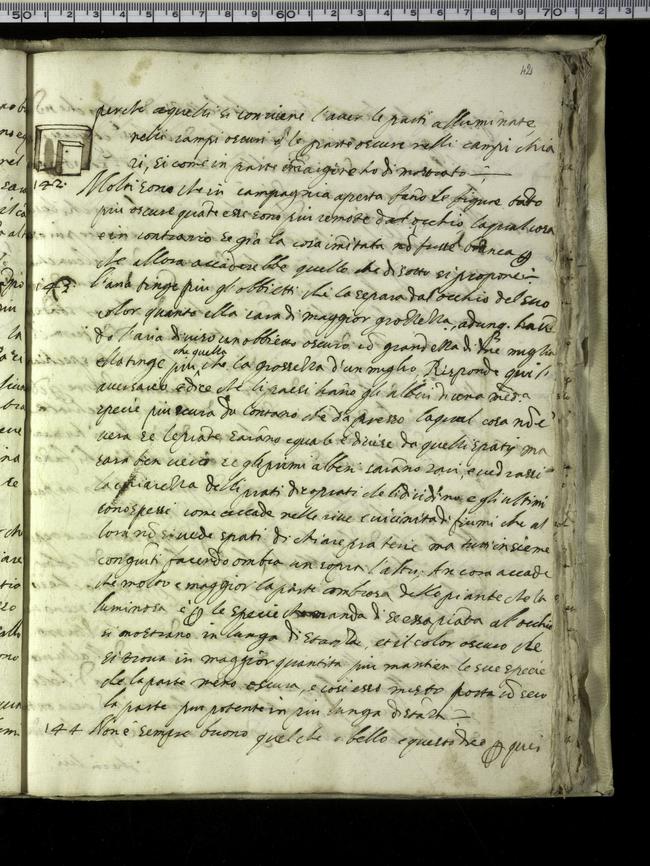 42
perche a quelli si conviene l'aver le parti alluminate
nelli campi oscuri e le parte oscure nelli campi chia
ri, si come in parte ho dimostrato
142. Molti sono che in campagnia aperta fano le figure tãto
piu oscure quãto esse sono piu remote dal occhio la qual cosa
e in contrario se gia la cosa imitata nõ fusse bianca
che allora accaderebbe quello che di sotto si propone
143. l'aria tinge piu gli obbietti che la separa dal occhio del suo
color quanto ella sara di maggior grossezza, adunq. haven
do l'aria diviso un obbietto oscuro cõ grandezza di miglia
ella tinge piu che quella che la grossezza d'un miglio. Risponde qui l'
aversario e dice che li paesi hano gli alberi d'una med.a
specie piu scura da lontano che da presso la qual cosa nõ e'
vera se le piante sarãno equale e divise da quelli spatij ma
sara ben vero se gli primi alberi sarãno rari, e vedrassi
la chiarezza delli prati che li dividino e gli ultimi
sono spessi come accade nelle rive e vicinita di fiumi che al
lora nõ si vede spati di chiare praterie ma tutti insieme
congiuti facendo ombra un sopra l'altro. Ancora accade
che molto e maggior la parte ombrosa delle piante che la
luminosa e le specie che manda di se essa piãta al occhio
si mostrano in lunga distantia, et il color oscuro che
si trova in maggior quantita piu mantien le sue specie
che la parte meno oscura, e cosi esso misto porta cõ seco
la parte piu potente in piu lunga distãtia
144 Non e' sempre buono quel che e bello e questo dico